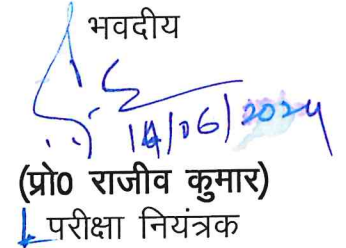 भवदीय
14/06/2024
(प्रो0 राजीव कुमार)
परीक्षा नियंत्रक